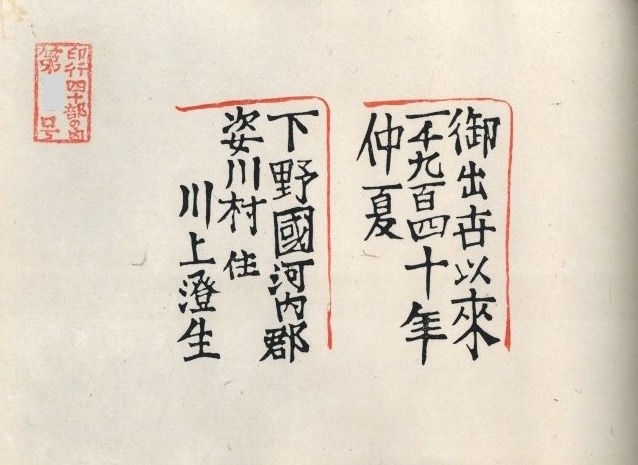 御出世以來
一千九百四十年
仲夏
下野國河内郡
姿川村 住
川上澄生
印行四十部の内
第 号